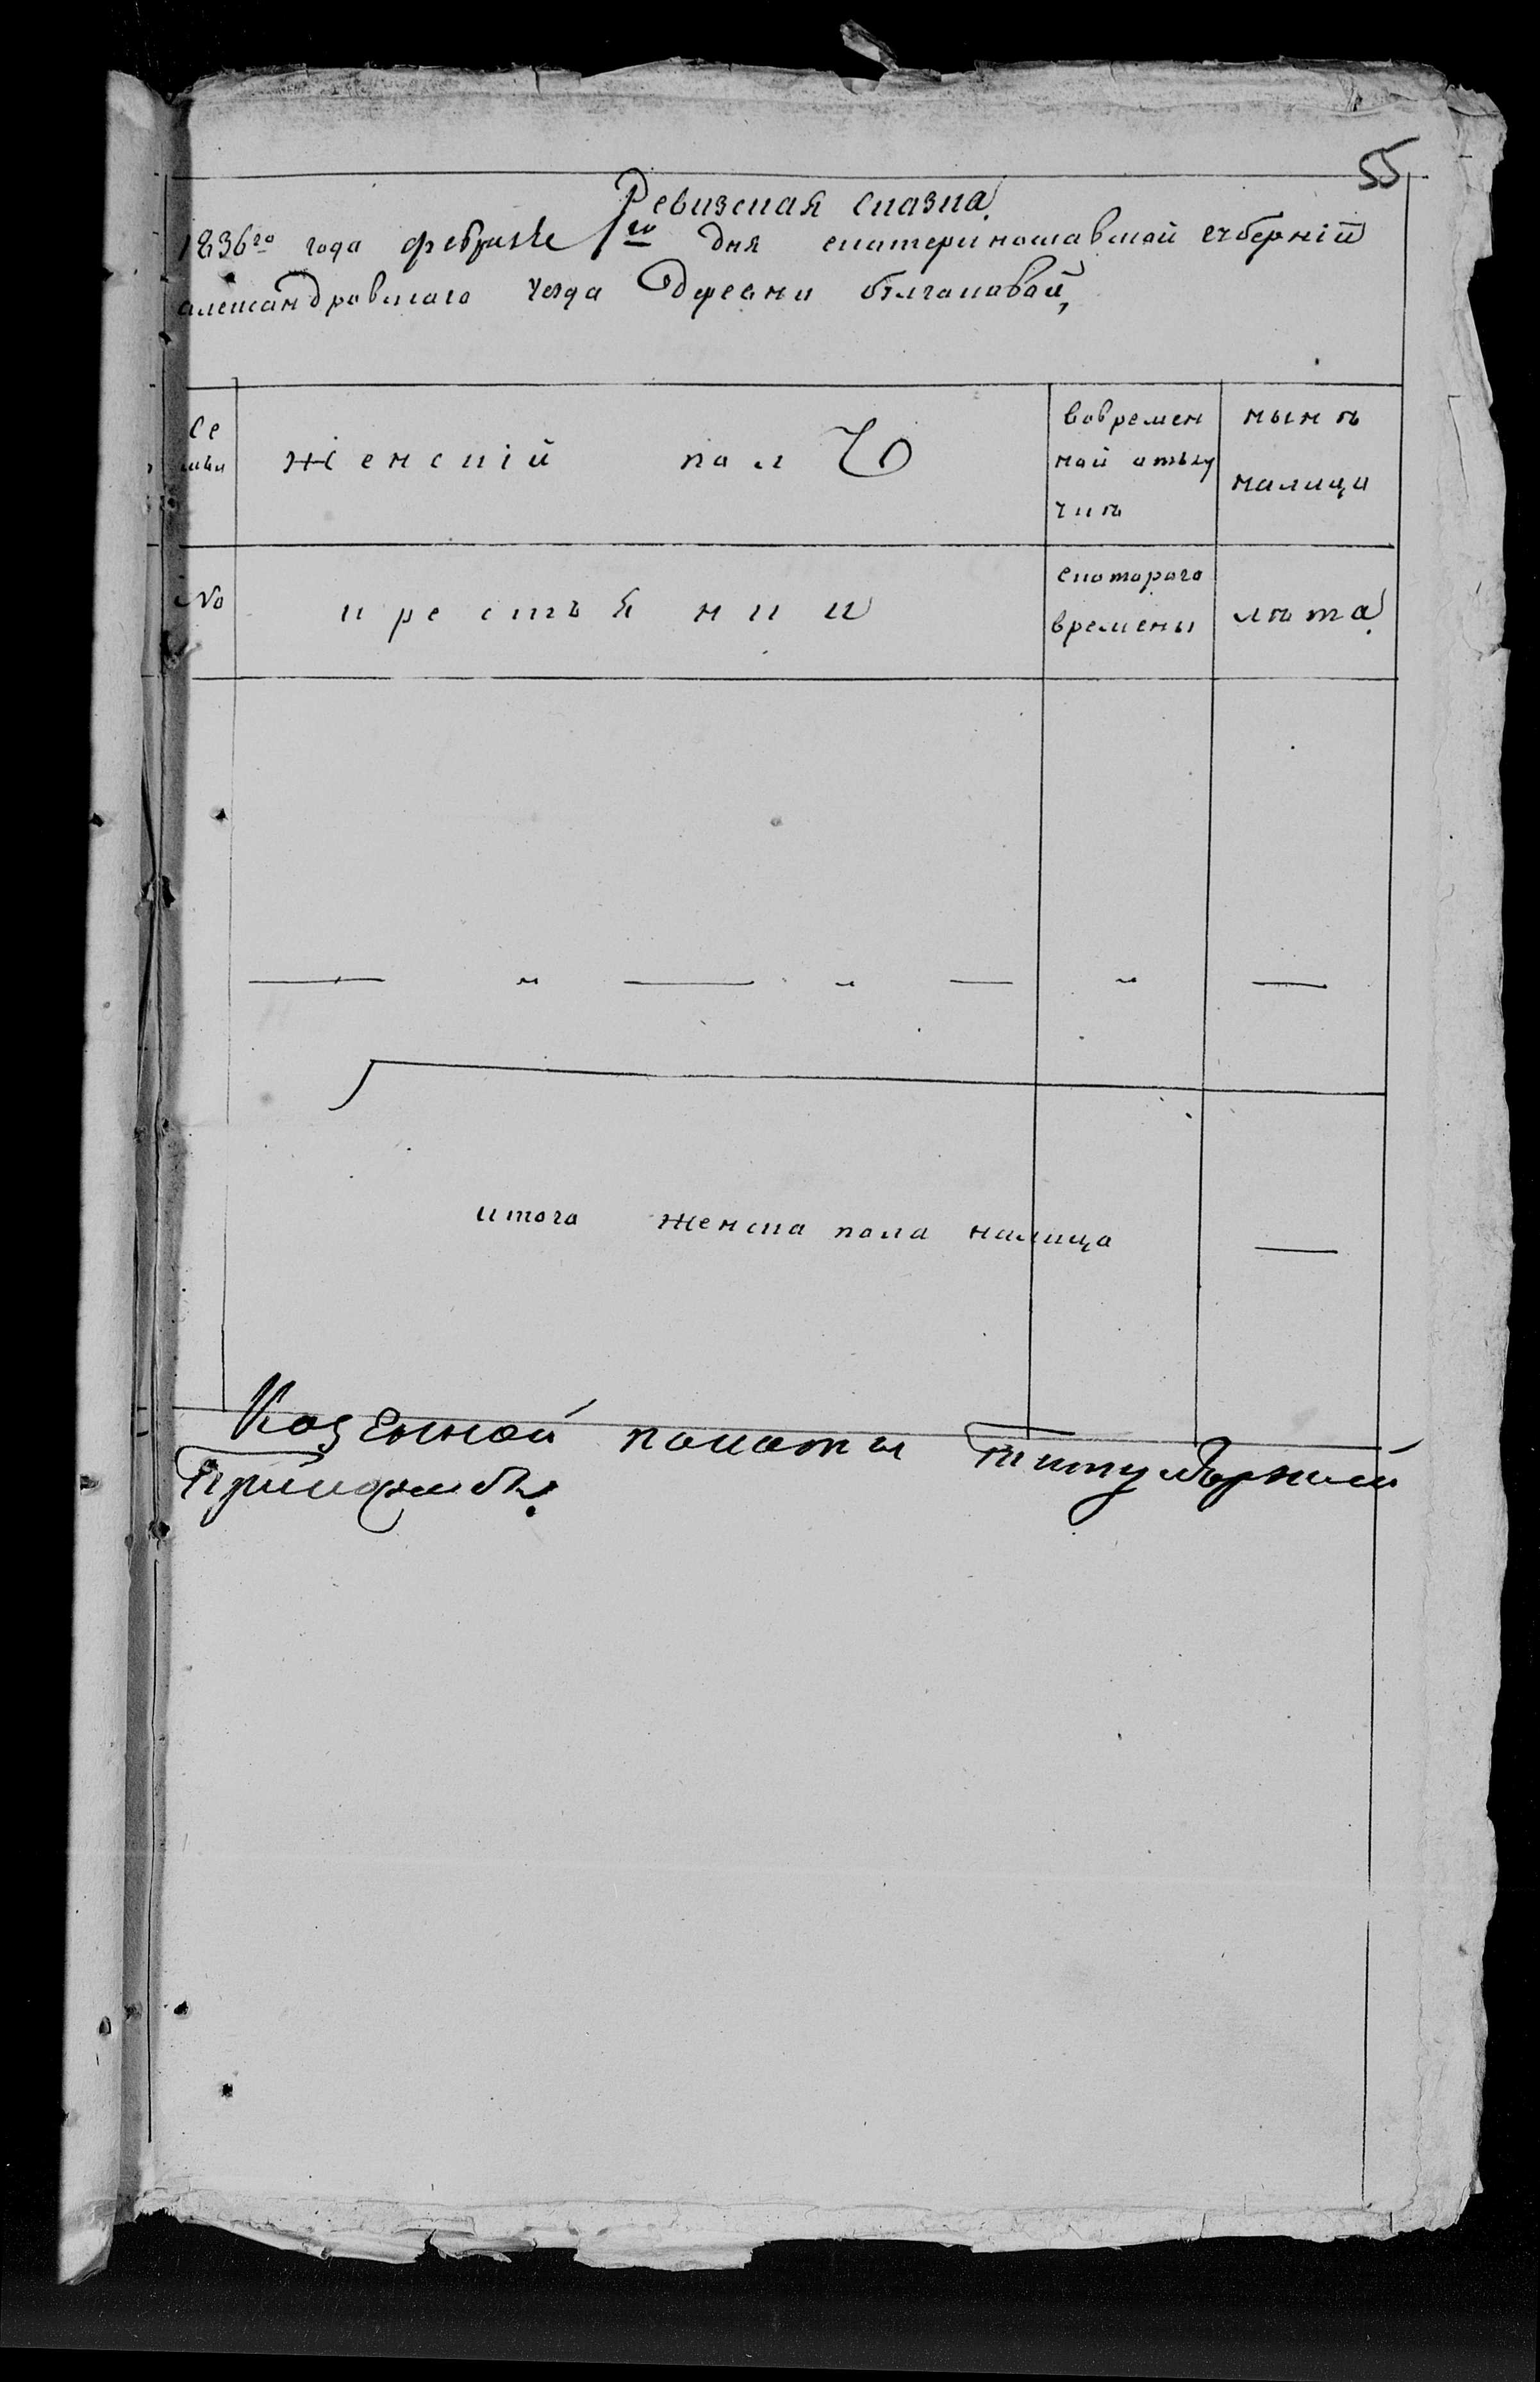 55
Ревизская сказка
1836го года февраля 1го дня екатериноставской губерніи
александровскаго уезда
Се
мьи
женскій полъ
вовремен
ной отлу
чкѣ
нынѣ
налицо
№
крестьянки
скоторого
времены
лѣта
итого женска пола налицо
Казенной полаты титулярный